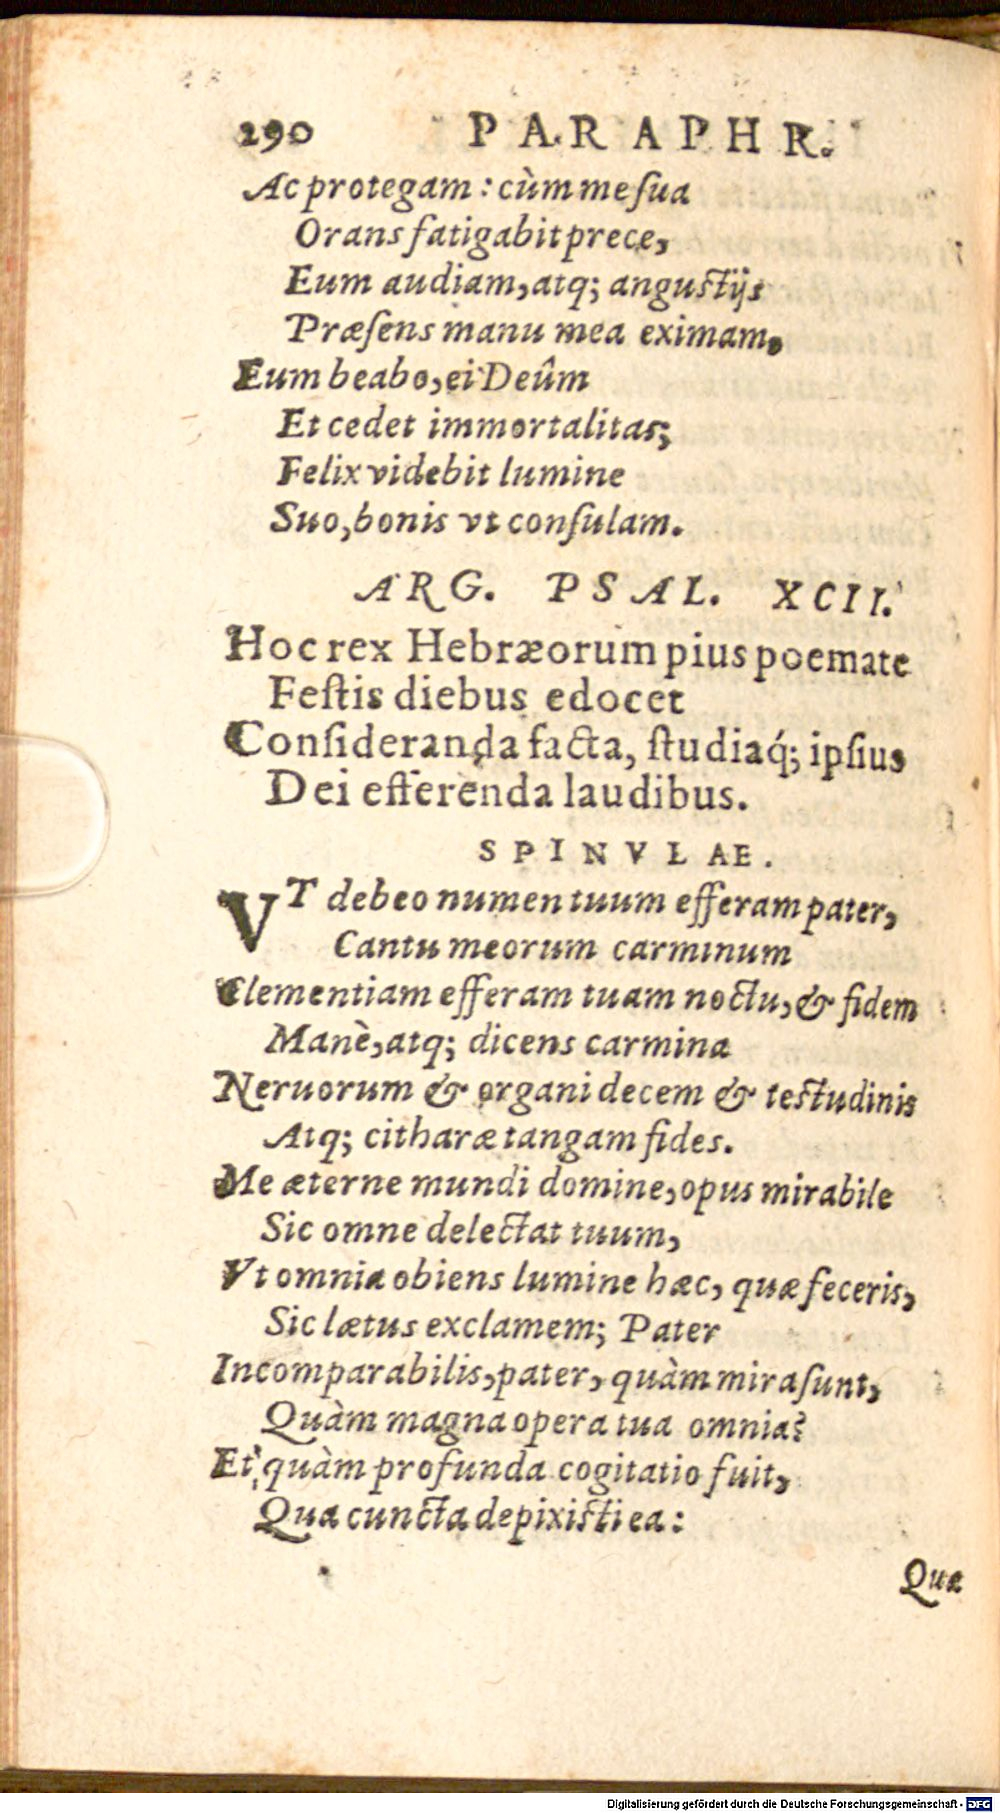 290 PARAPHR.
Ac protegam: cùm me ſua
Orans fatigabit prece,
Eum audiam, atq; anguſtijs
Præſens manu mea eximam.
Eum beabo, ei Deûm
Et cedet immortalitas;
Felix videbit lumine
Suo, bonis vt conſulam.
ARG. PSAL. XCII.
Hoc rex Hebræorum pius poemate
Feſtis diebus edocet
Conſideranda facta, ſtudiaq́; ipſius
Dei efferenda laudibus.
SPINVLAE.
VT debeo numen tuum efferam pater,
Cantu meorum carminum
Clementiam efferam tuam noctu, & fidem
Manè, atq; dicens carmina
Neruorum & organi decem & teſtudinis
Atq; citharæ tangam fides.
Me æterne mundi domine, opus mirabile
Sic omne delectat tuum,
Vt omnia obiens lumine hæc, quæ feceris,
Sic lætus exclamem; Pater
Incomparabilis, pater, quàm mira ſunt,
Quàm magna opera tua omnia?
Et quàm profunda cogitatio fuit,
Qua cuncta depixiſti ea:
Quæ
Digitalisierung gefördert durch die Deutsche Forschungsgemeinschaft - DFG